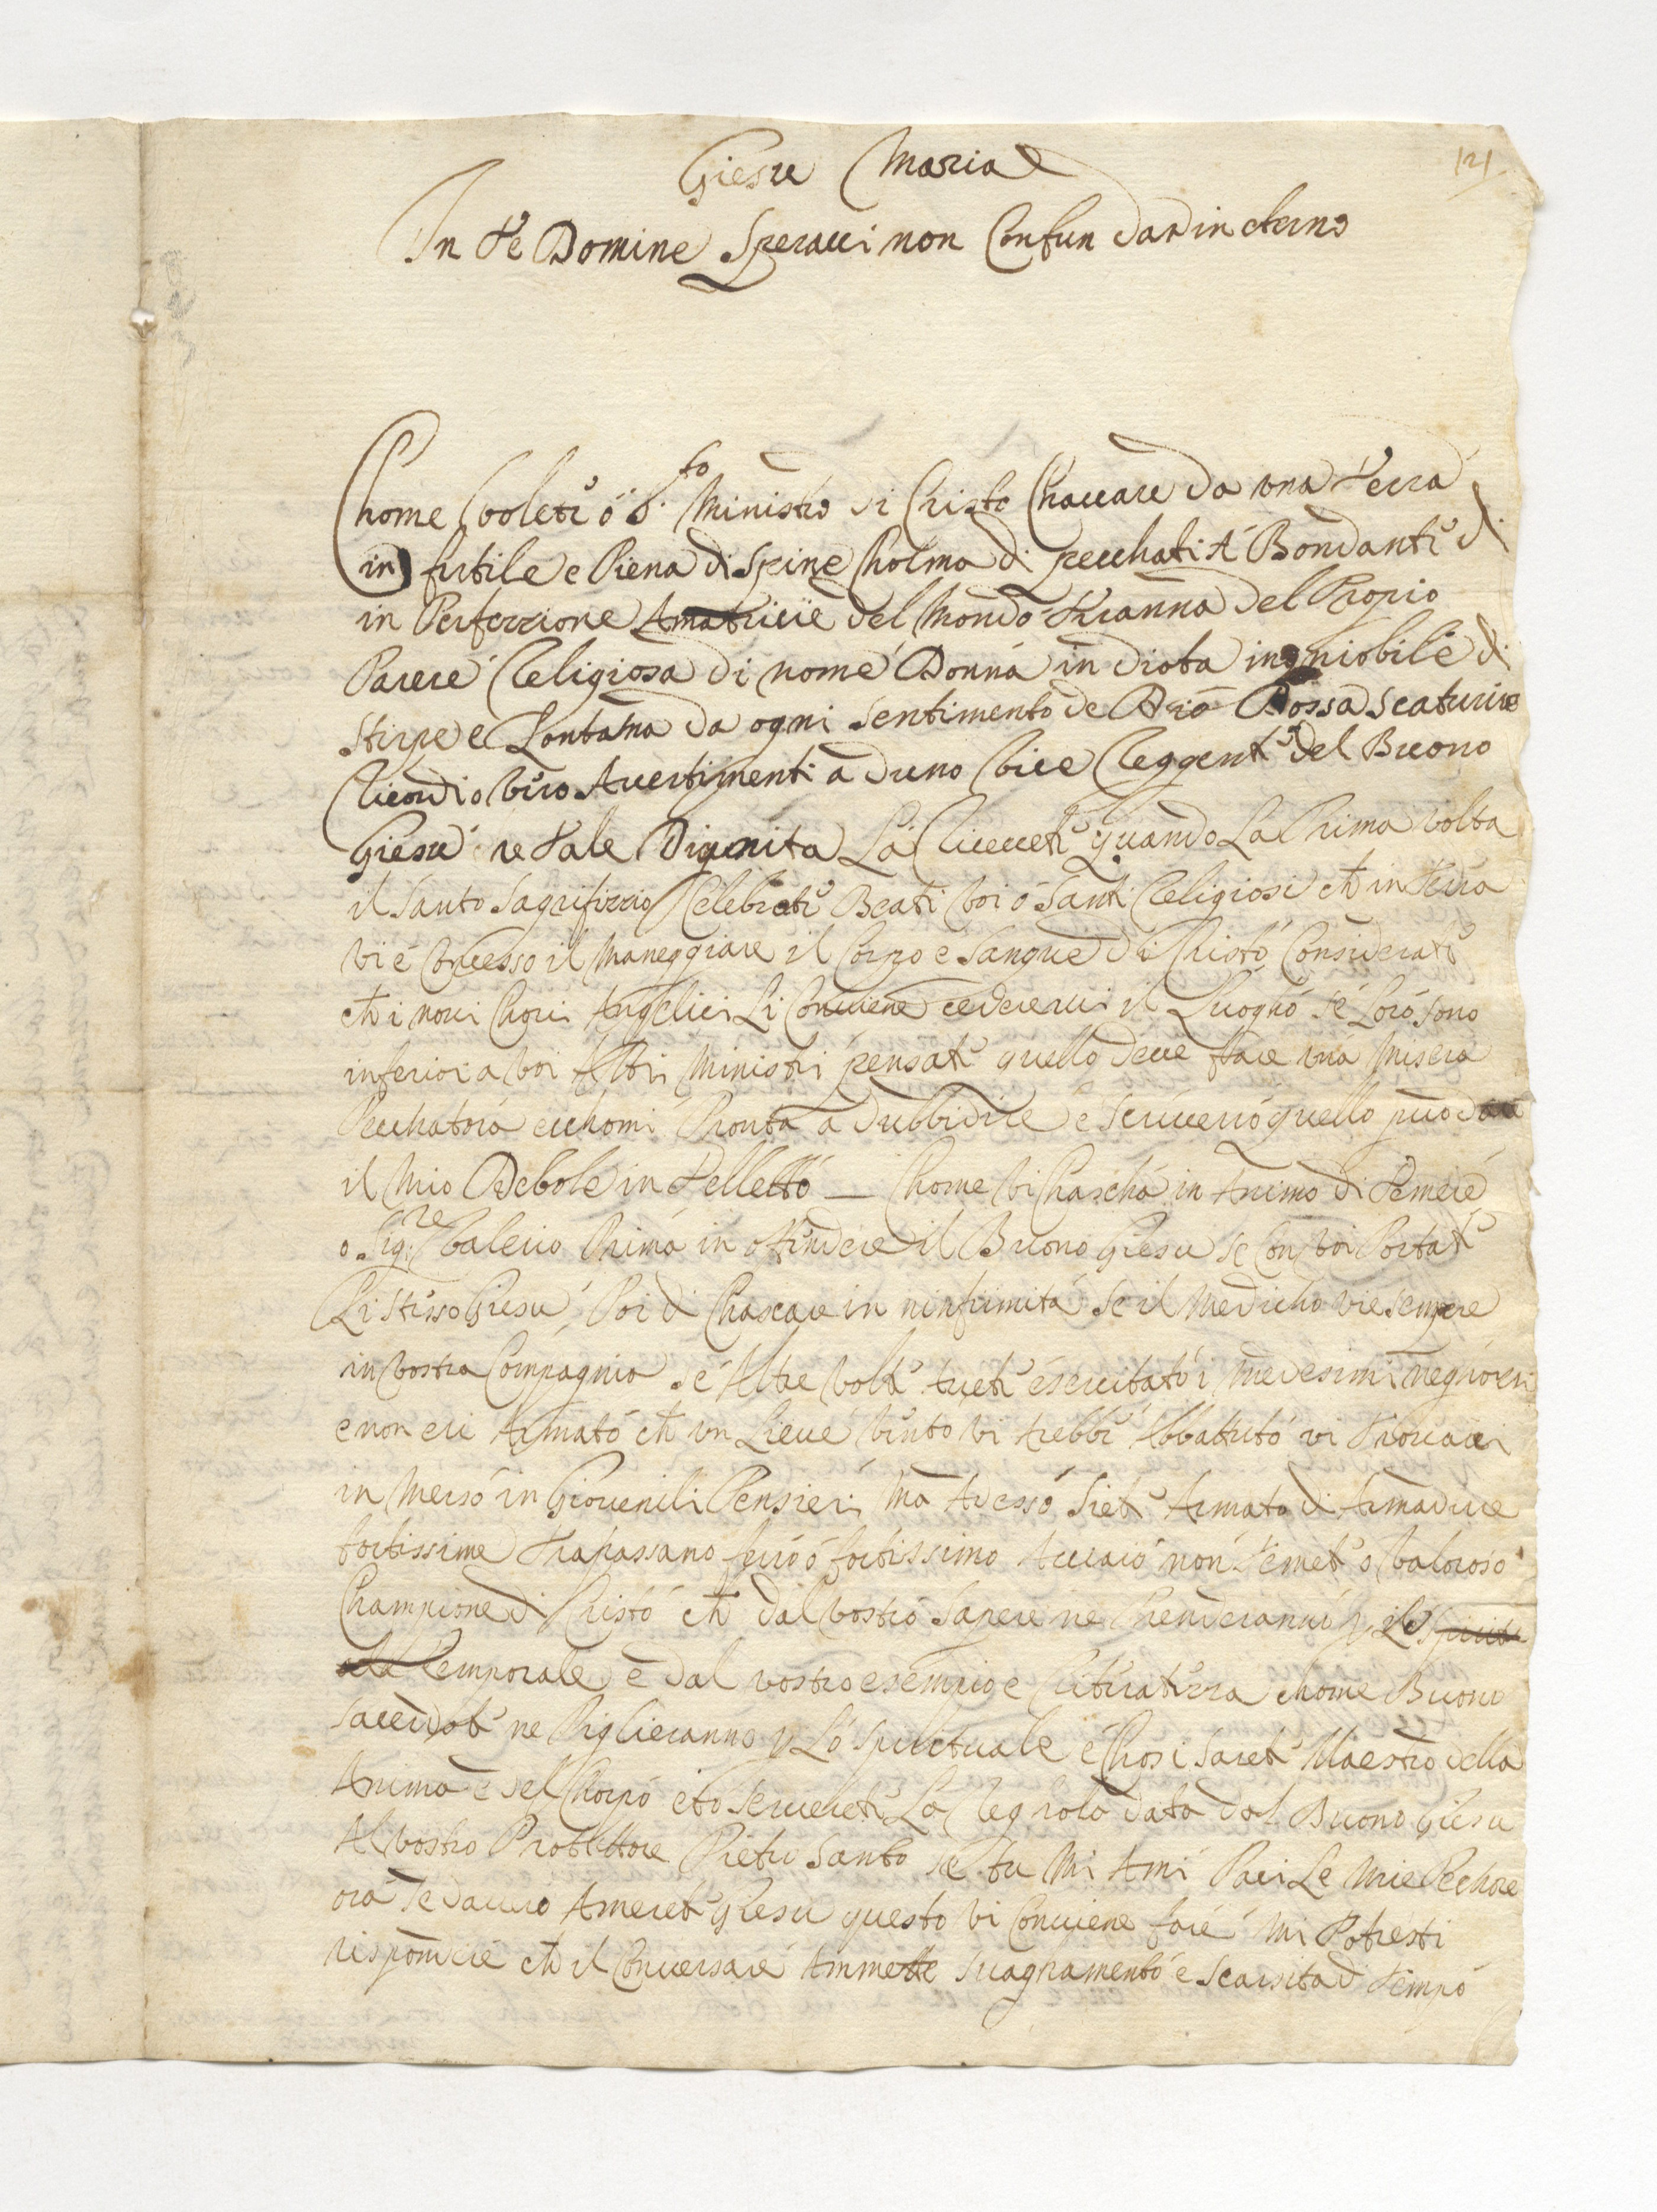 121
Giesu Maria
In te Domine Speraui non Confun dar in eterno
Chome Volete ò S.to Ministro di Cristo Chauare da una terra
in fertile e Piena di Spine Cholma di pecchati A Bondante di
in Perfezzione Amatricie del Mondo tiranna del Propio
Parere Religiosa di nome Donna in diota in niobile di
Stirpe e Lontana da ogni Sentimento de Dio Possa Scaturire
Ricordi o vero Auertimenti a duno Vice Reggente del Buono
Giesu e tale Dignita La Riceuete quando La Prima Volta
il Santo Sagrifizzio Celebrate Beati Voi ó Santi Religiosi ch in terra
vi é Concesso il Maneggiare il Corpo e Sangue di Cristo Considerate
ch i noui Chori Angelici Li Conuiene cederui il Luogho se Loro sono
inferiori a Voi Altri Ministri pensate quello deue fare una Misera
Pecchatora ecchomi Pronta a dubbidire e Scriuerò quello può dare
il Mio Debole in telletto — Chome Vi Chascha in Animo di temere
o Sig.re Valerio Prima in ofendere il Buono Giesu se Con Voi Portate
Li Stesso Giesu, Poi di Chascare in ninfermità Se il Medicho vie Sempre
in Vostra Compagnia se Altre Volte Auete esercitato i Medesimi negiozi
e non eri Armato ch un Lieue Vento vi Arebbe Abbattuto vi trouaui
in Merso in Giouenili Pensieri Ma Adesso Siete Armato di Armadure
fortissime trapassano ferro ó fortissimo Acciaio non temete o Valoroso
Champione di Cristo ch dal Vostro Sapere ne Prenderanno p il
Temporale e dal vostro esempio e chome Buono
Sacerdote ne Piglieranno p Lo Spirituale e Chosi Sarete Maestro della
Anima e del Chorpo e Seruerete La Reghola data dal Buono Giesu
Al Vostro Protettore Pietro Santo Se tu Mi Ami Paci Le Mie Pechore
ora Se dauero Amerete Giesu questo vi Conuiene fare Mi Potresti
rispondere ch il Conuersare Ammette Suaghamento e Scarsita di tempo